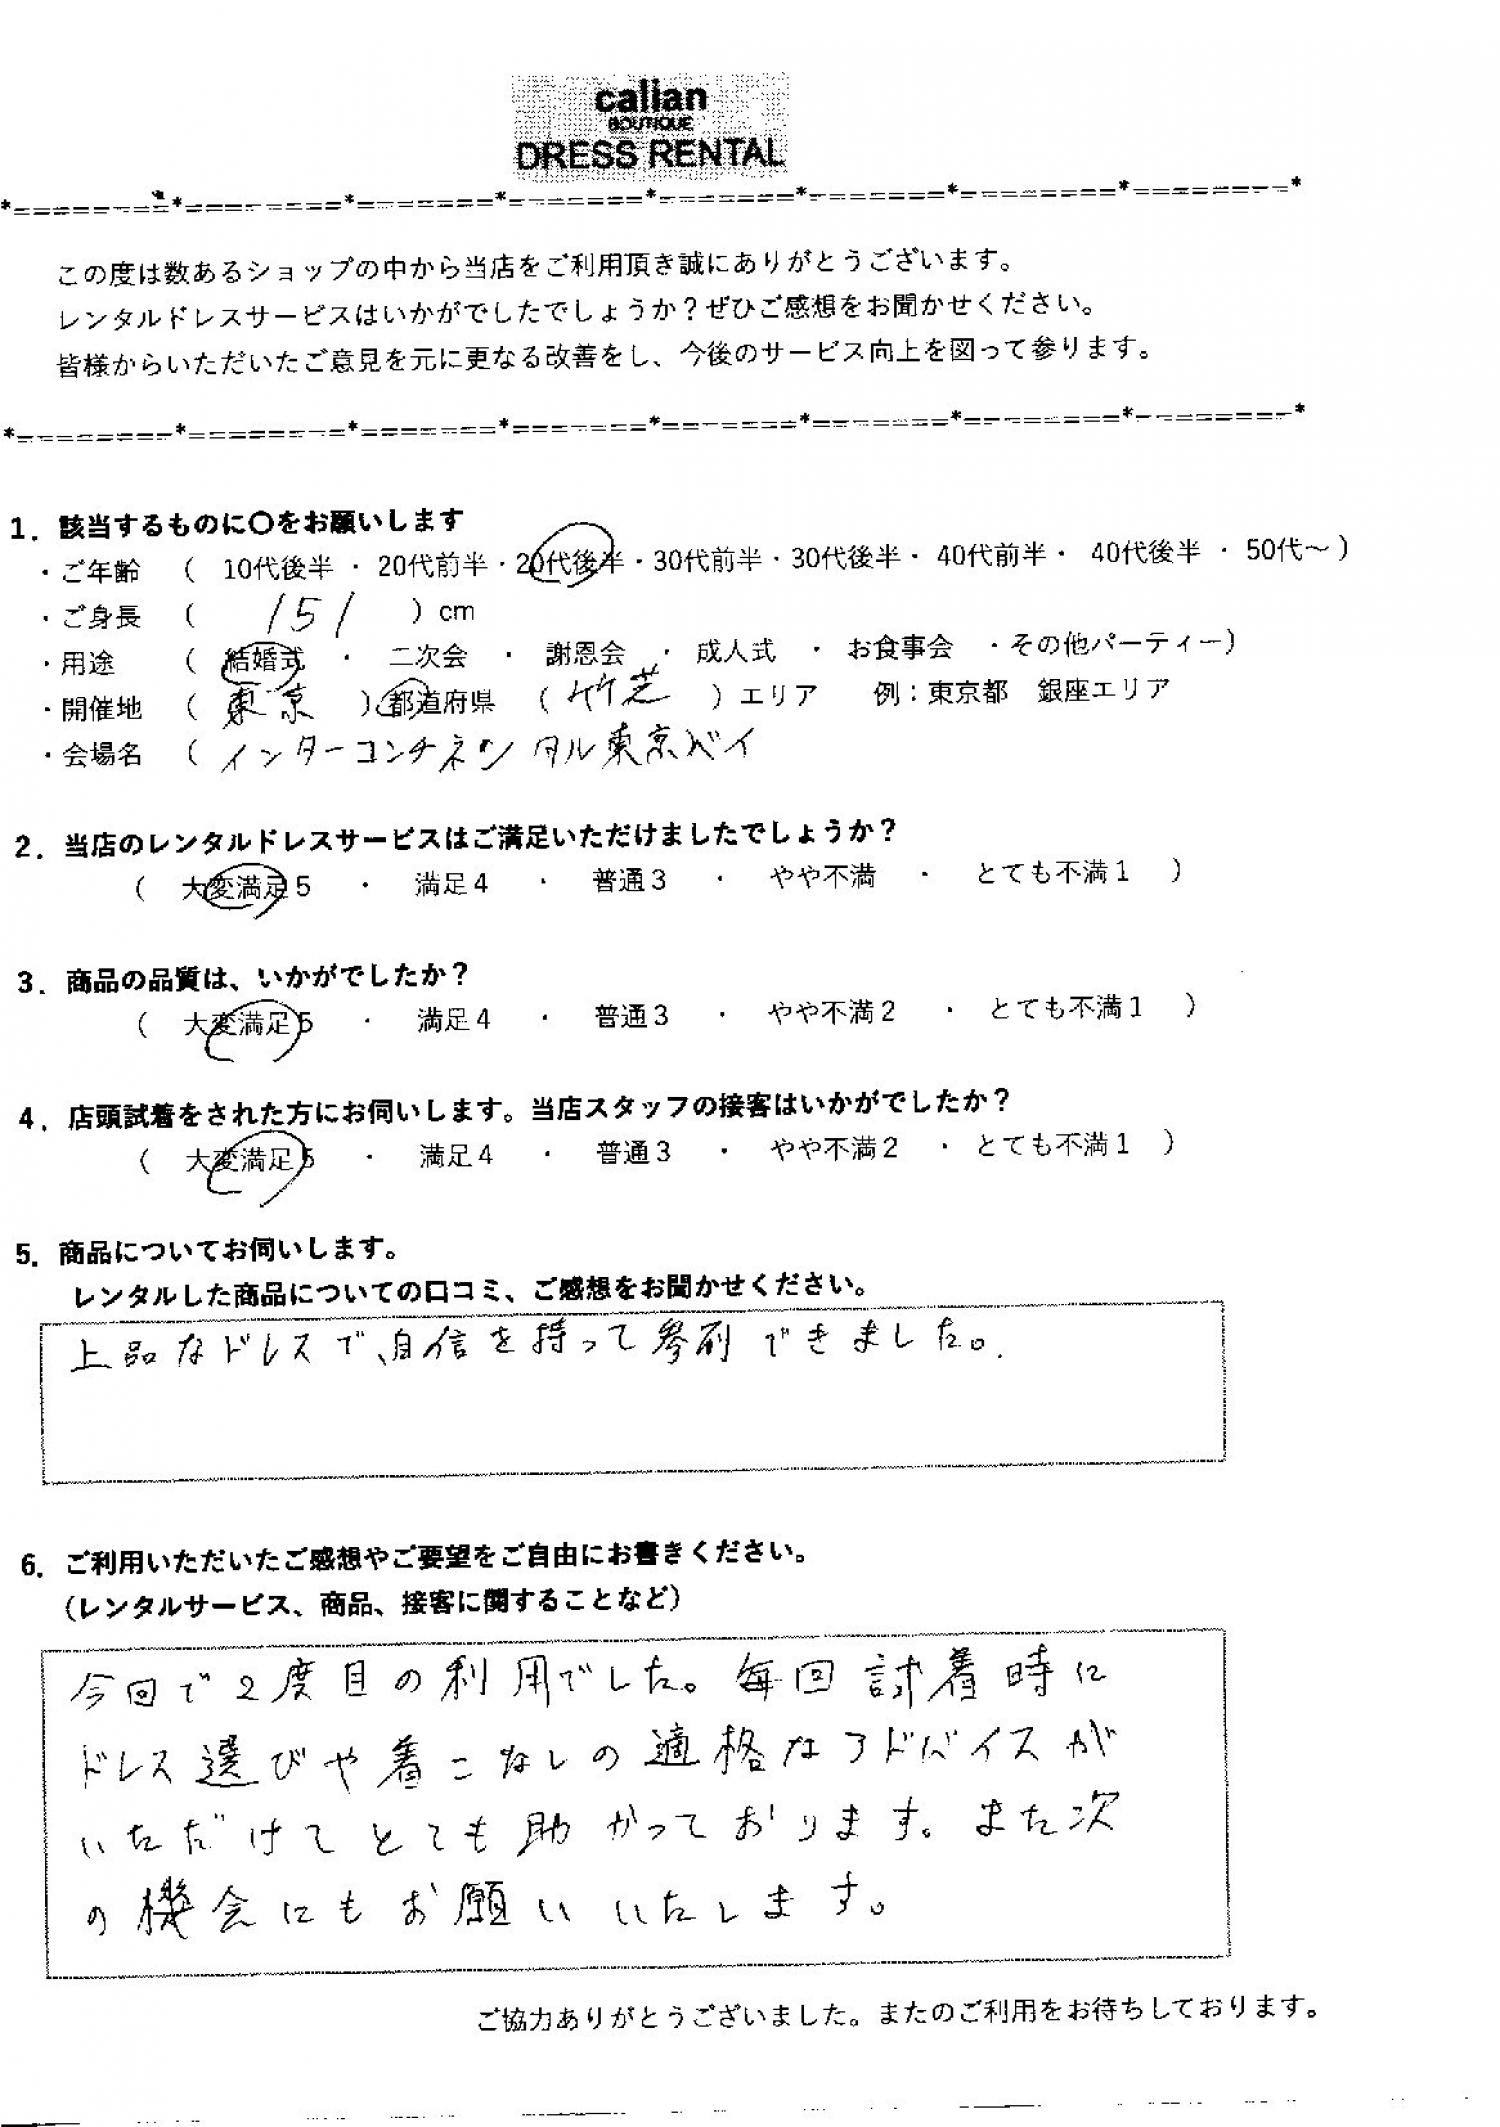 calian
BOUTIQUE
DRESS RENTAL
*========*========*=======*=======*=======*=======*========*========*
この度は数あるショップの中から当店をご利用頂き誠にありがとうございます。
レンタルドレスサービスはいかがでしたでしょうか？ぜひご感想をお聞かせください。
皆様からいただいたご意見を元に更なる改善をし、今後のサービス向上を図って参ります。
*========*========*=======*=======*=======*=======*========*========*
1．該当するものに〇をお願いします
・ご年齢 （ 10代後半 ・ 20代前半・20代後半・30代前半・30代後半・ 40代前半・ 40代後半 ・ 50代～）
・ご身長 （ 151 ）cm
・用途 （ 結婚式 ・ 二次会 ・ 謝恩会 ・ 成人式 ・ お食事会 ・その他パーティー）
・開催地 （ 東京 ）都道府県 （ 竹芝 ）エリア 例：東京都 銀座エリア
・会場名 （ インターコンチネンタル東京ベイ
2．当店のレンタルドレスサービスはご満足いただけましたでしょうか？
（ 大変満足５ ・ 満足４ ・ 普通３ ・ やや不満 ・ とても不満１ ）
3．商品の品質は、いかがでしたか？
（ 大変満足５ ・ 満足４ ・ 普通３ ・ やや不満２ ・ とても不満１ ）
4．店頭試着をされた方にお伺いします。当店スタッフの接客はいかがでしたか？
（ 大変満足５ ・ 満足４ ・ 普通３ ・ やや不満２ ・ とても不満１ ）
5．商品についてお伺いします。
レンタルした商品についての口コミ、ご感想をお聞かせください。
上品なドレスで、自信を持って参列できました。
6．ご利用いただいたご感想やご要望をご自由にお書きください。
（レンタルサービス、商品、接客に関することなど）
今回で２度目の利用でした。毎回試着時に
ドレス選びや着こなしの適格なアドバイスが
いただけてとても助かっております。また次
の機会にもお願いいたします。
ご協力ありがとうございました。またのご利用をお待ちしております。